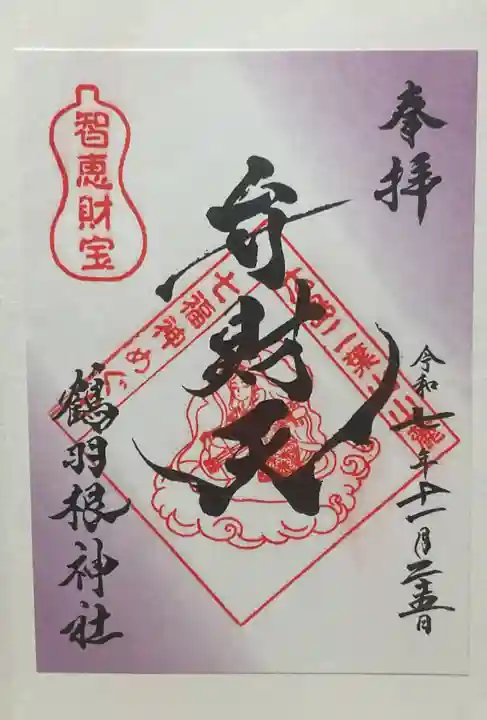 奉拝
令和七年十一月二十五日
弁財天
智恵財宝
七福神めぐり
二葉
鶴羽根神社